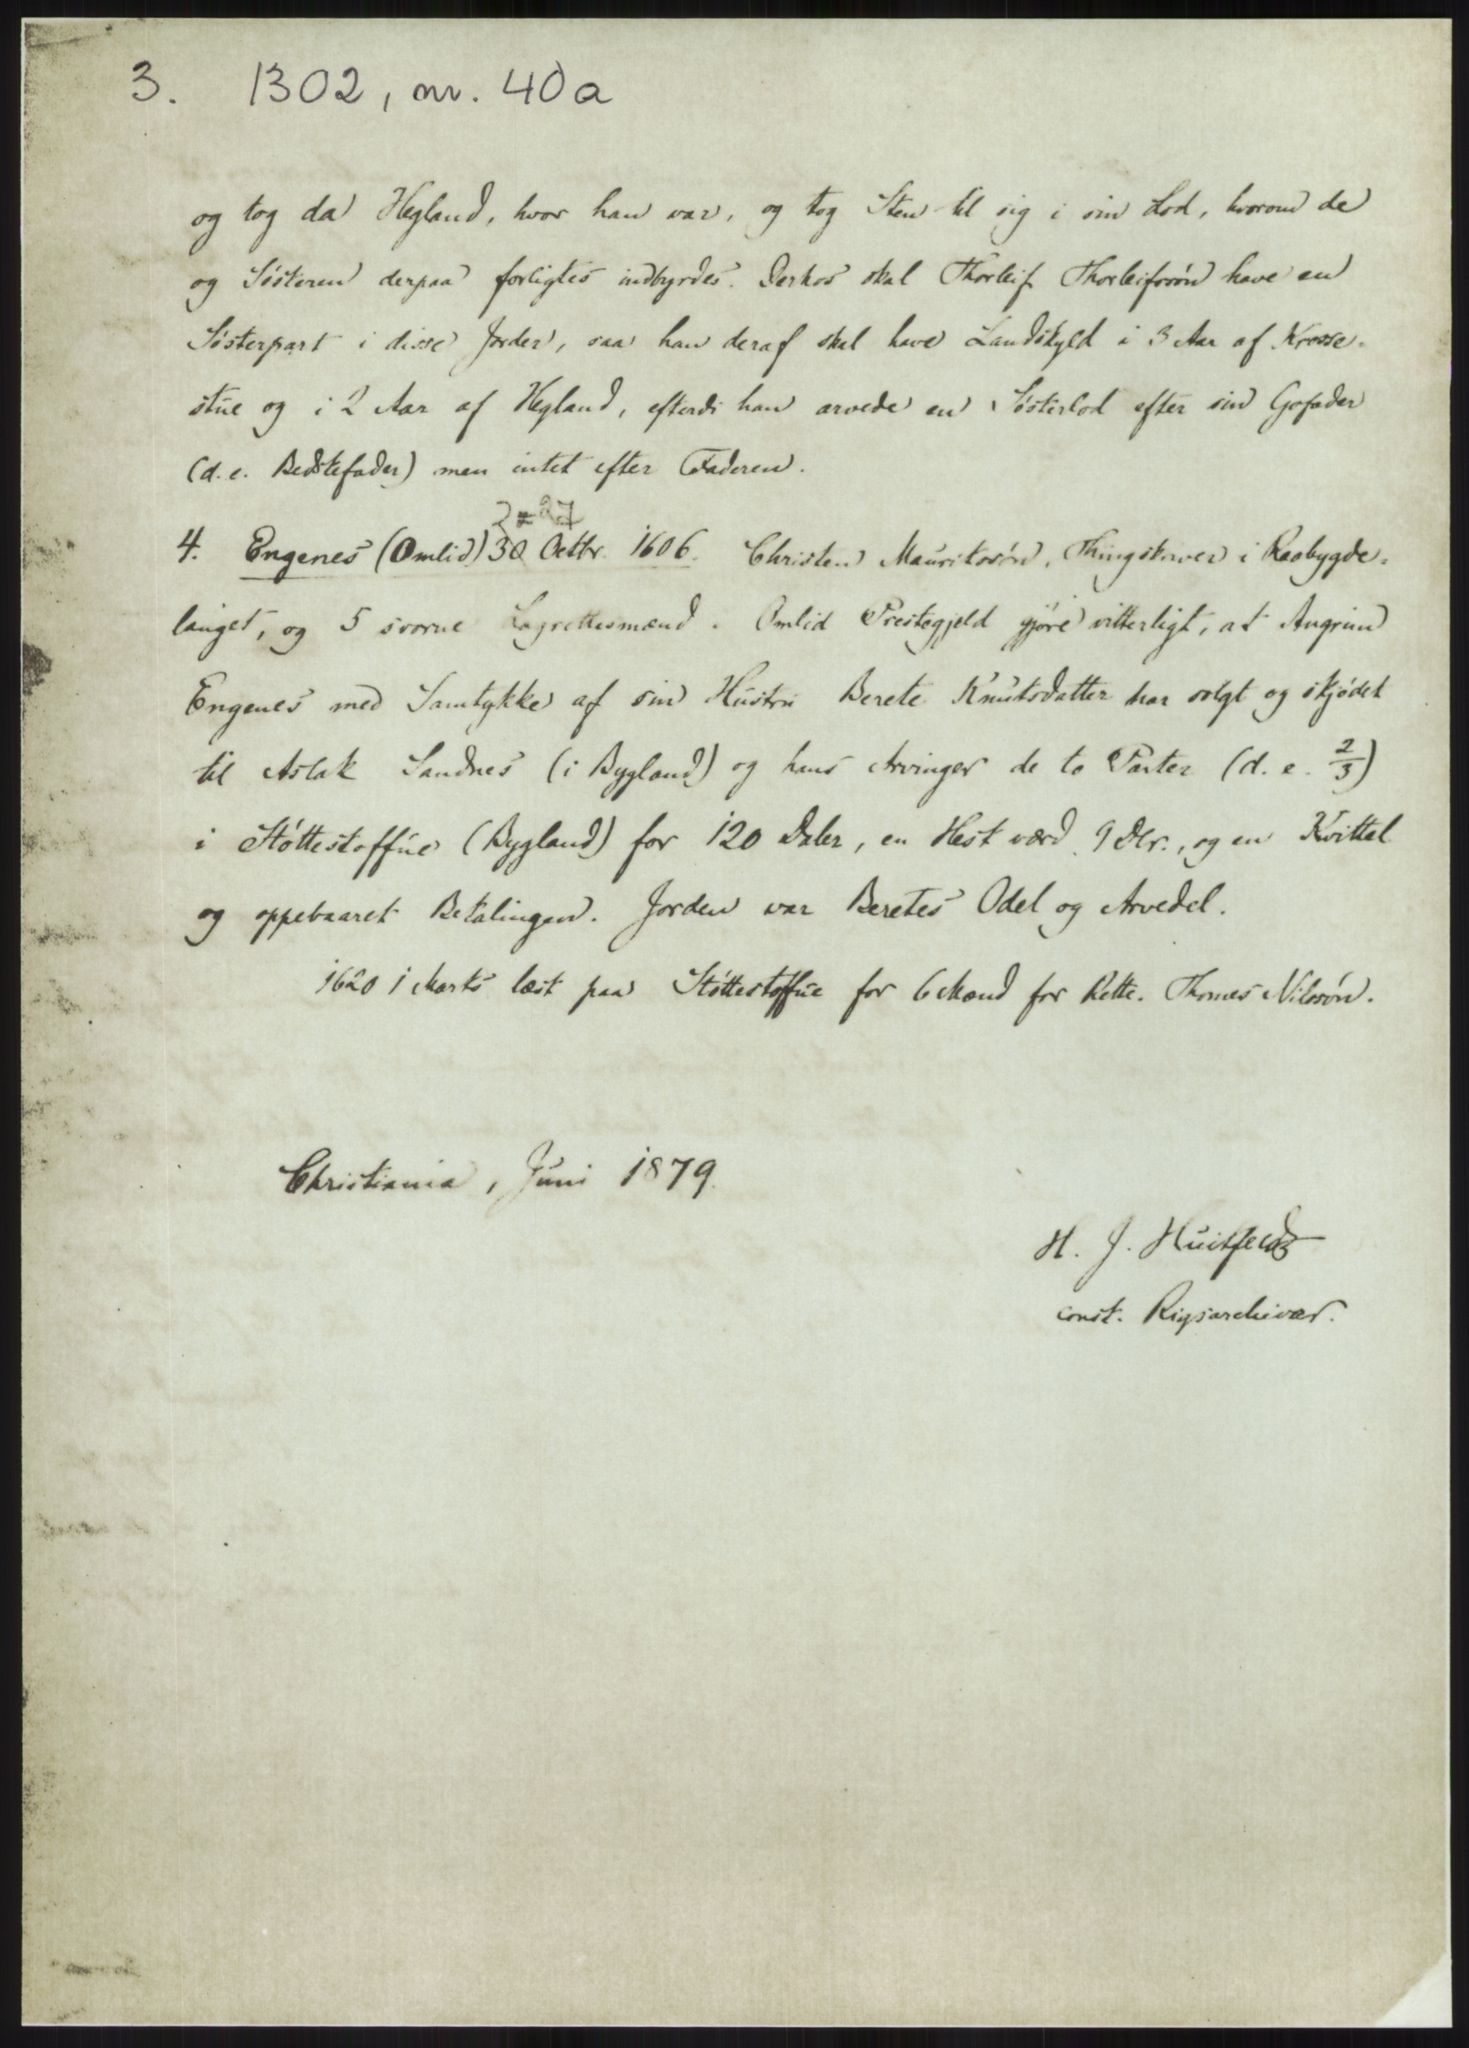 3. 1302, nr. 40a
og tog da Hegland, hvor han var, og tog Sten til sig i sin Lod, hvorom de
og Søsteren derpaa forligtes indbyrdes. Derhos skal Thorleif Thorleifssøn have en
Søsterpart i disse Jorder, saa han deraf skal have Landskyld i 3 Aar af Krosse-
stue og i 2 Aar af Hegland, efterdi han arvede en Søsterlod efter sin Gofader
(d. e. Bedstefader) men intet efter Faderen.
4. Engenes (Omlid) 30 Octbr. 1606. Christen Mauritssøn, Thingskriver i Raabygde-
lauget, og 5 svorne Lagrettesmænd i Omlid Prestegjeld gjøre vitterligt, at Angrim
Engenes med Samtykke af sin Hustru Berete Knutsdatter har solgt og skjødet
til Aslak Sandnes (i Bygland) og hans Arvinger de to Parter (d. e. 2/3)
i Støttestoffue (Bygland) for 120 Daler, en Hest værd 9 Dlr., og en Kvittel
og oppebaaret Betalingen. Jorden var Beretes Odel og Arvedel.
1620 1 Marts læst paa Støttestoffue for 6 Mænd for Rette. Thomes Nilssøn.
Christiania, Juni 1879.
H. J. Huitfeldt
const. Rigsarchivar.